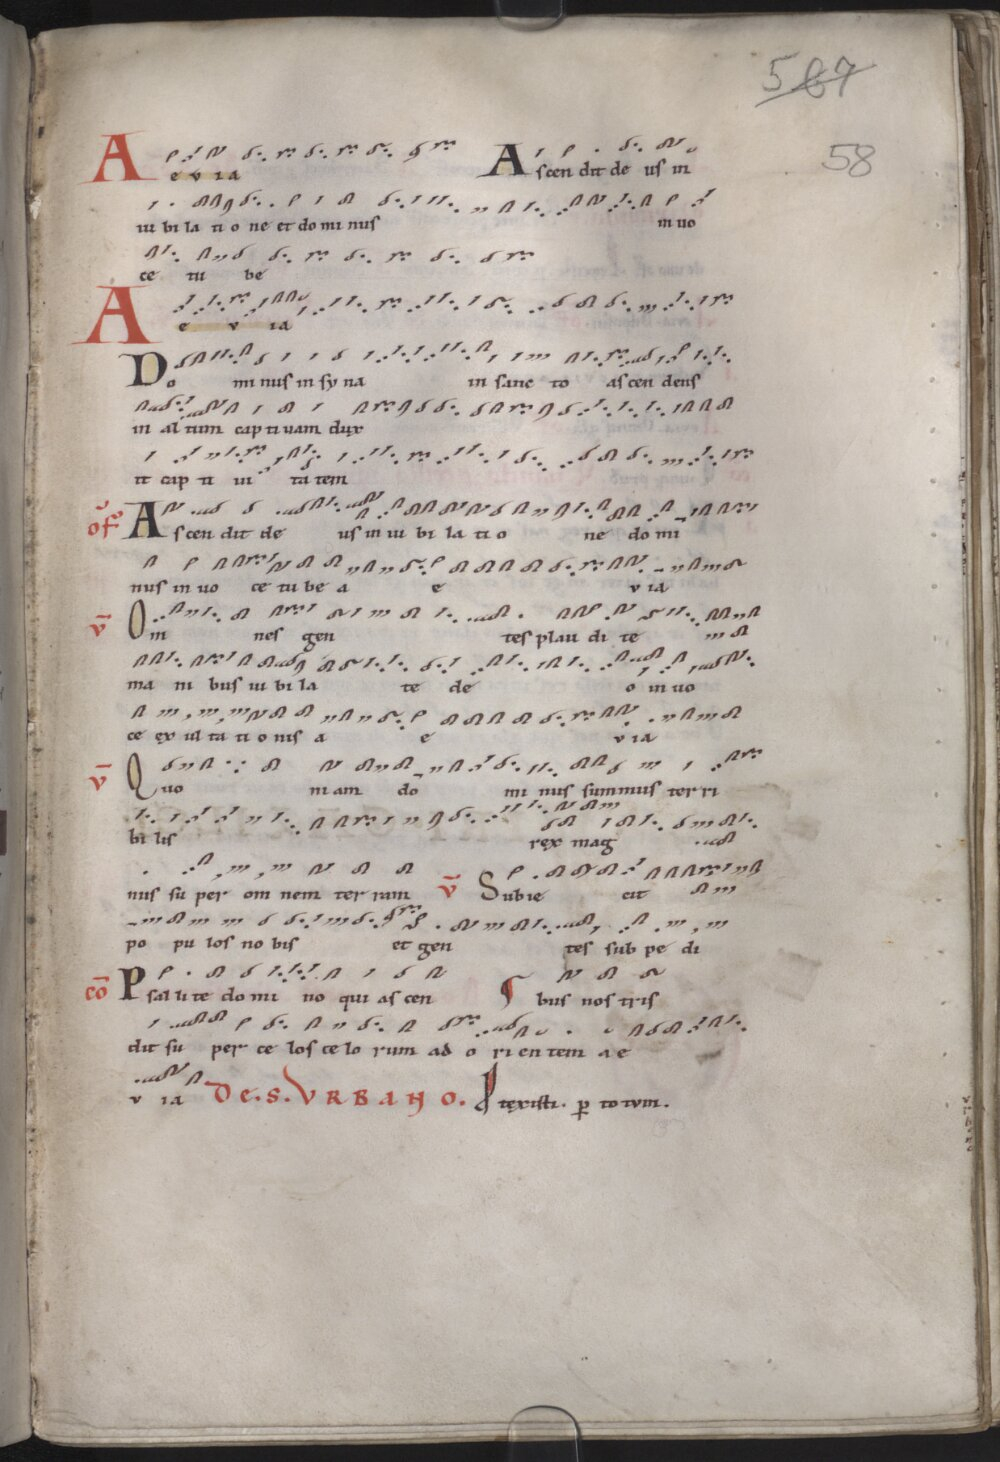 567
58
A e v ia A scen dit de us in
iu bi la ti o ne et do mi nus in uo
ce tu be
A e v ia
Do mi nus in sy na in sanc to as cen dens
in al tum cap ti uam dux
it cap ti ui ta tem
of A scen dit de us in iu bi la ti o ne do mi
nus in uo ce tu be a e v ia
v Om nes gen tes plau di te
ma ni bus iu bi la te de o in uo
ce ex ul ta ti o nis a e v ia
v Quo ni am do mi nus summus ter ri
bi lis rex mag
nus su per om nem ter ram v Subie cit
po pu los no bis et gen tes sub pe di
co P sal li te do mi no qui as cen ¶ bus nos tris
dit su per ce los ce lo rum ad o ri en tem a e
v ia De. S. VRBANO. texisti. p totum.